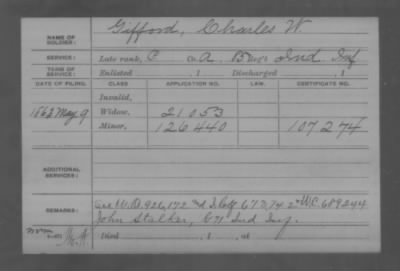 NAME OF SOLDIER: Gifford, Charles W.
SERVICE: Late rank, C Co. A, Reg't Ind. Inf
TERM OF SERVICE: Enlisted , 1 Discharged , 1
DATE OF FILING. CLASS APPLICATION NO. LAW. CERTIFICATE NO.
Invalid,
1863 May 9 Widow, 21053
Minor, 126440 107274
ADDITIONAL SERVICES:
REMARKS: See W.O. 926,172 and 677,742 W.C. 689244
John Stalker, Ind Inf.
Died , 1 , at